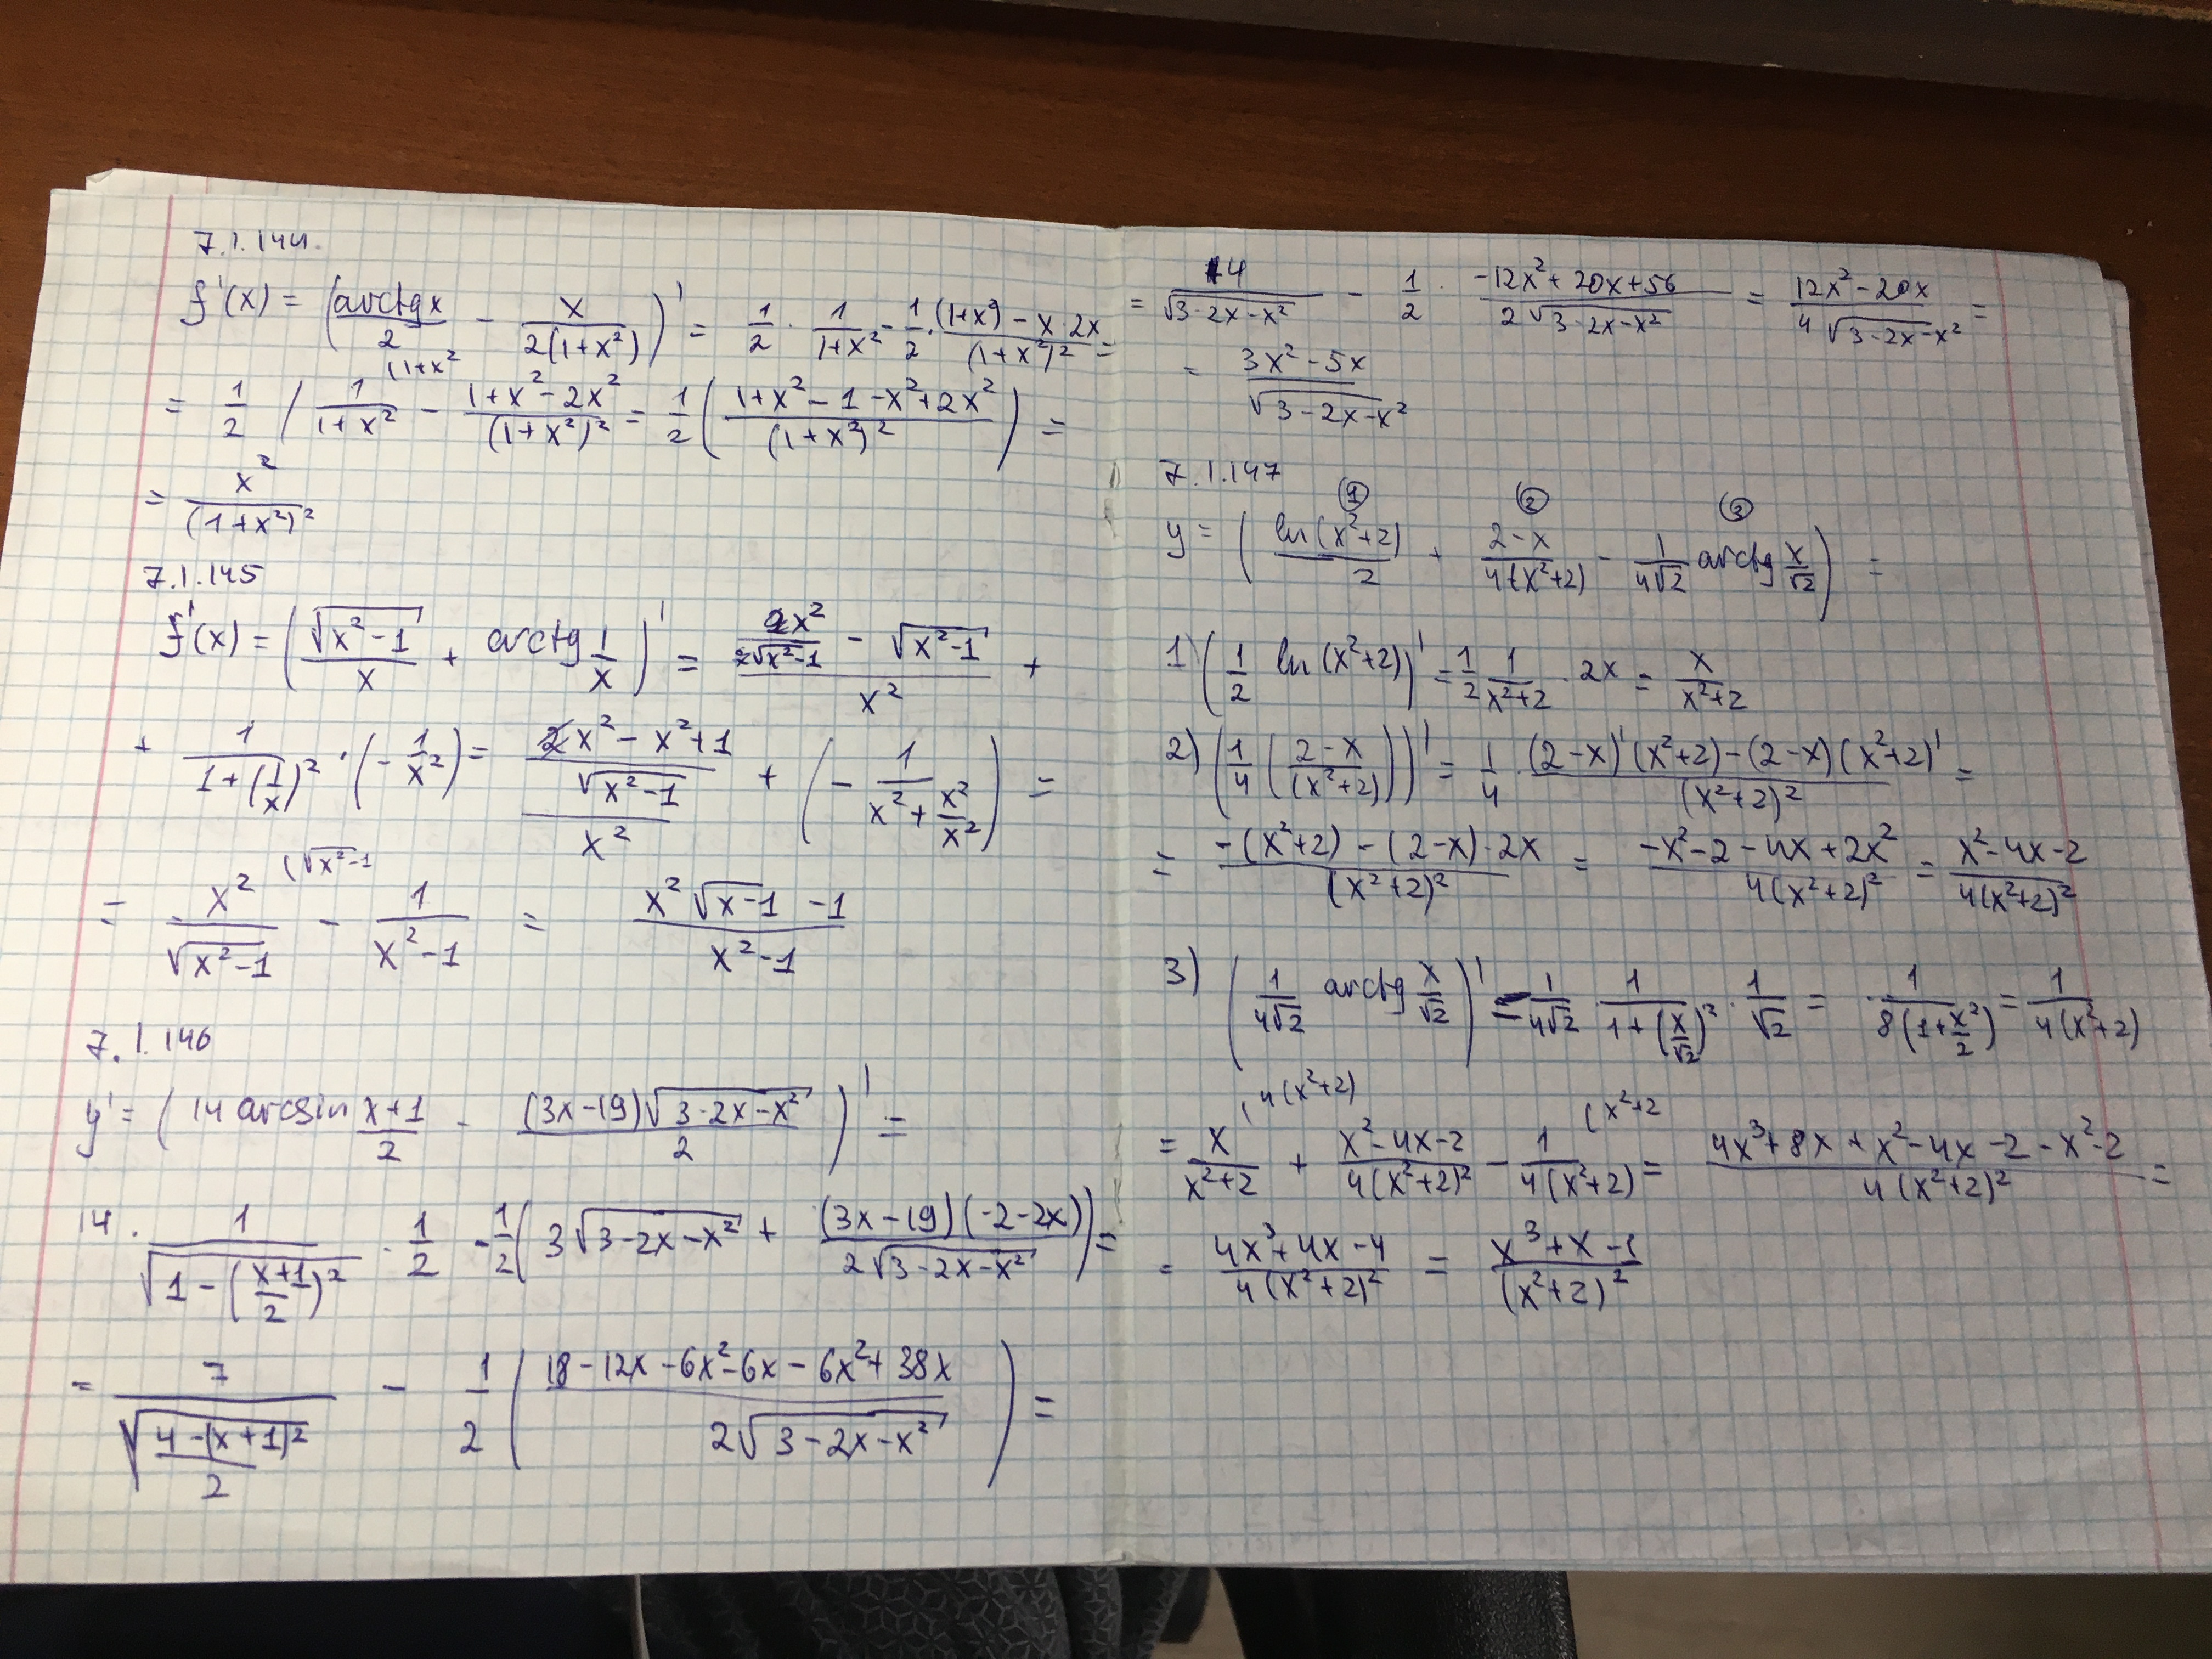 7.1.144.
f'(x) = (arctg x / 2 - x / 2(1+x²))' = 1/2 · 1/(1+x²) - 1/2 · ((1+x²) - x·2x)/(1+x²)² =
(1+x²
= 1/2 (1/(1+x²) - (1+x²-2x²)/(1+x²)² = 1/2 ((1+x²-1-x²+2x²)/(1+x²)²) =
= x²/(1+x²)²
7.1.145
f'(x) = (√(x²-1)/x + arctg 1/x)' = (2x²/(2√(x²-1)) - √(x²-1))/x² +
+ 1/(1+(1/x)²) · (-1/x²) = ((2x²-x²+1)/√(x²-1))/x² + (-1/(x²+x²/x²)) =
(√(x²-1)
= x²/√(x²-1) - 1/(x²-1) = (x²√(x-1) -1)/(x²-1)
7.1.146
y' = (14 arcsin (x+1)/2 - (3x-19)√(3-2x-x²)/2)' =
14 · 1/√(1-((x+1)/2)²) · 1/2 - 1/2 (3√(3-2x-x²) + (3x-19)(-2-2x)/(2√(3-2x-x²))) =
= 7/√(4-(x+1)²/2) - 1/2 ((18-12x-6x²-6x-6x²+38x)/(2√(3-2x-x²))) =
= 14/√(3-2x-x²) - 1/2 · (-12x²+20x+56)/(2√(3-2x-x²)) = (12x²-20x)/(4√(3-2x-x²)) =
= (3x²-5x)/√(3-2x-x²)
7.1.147
① ② ③
y = (ln(x²+2)/2 + (2-x)/(4(x²+2)) - 1/(4√2) arctg x/√2) =
1) (1/2 ln(x²+2))' = 1/2 1/(x²+2) · 2x = x/(x²+2)
2) (1/4 ((2-x)/(x²+2)))' = 1/4 · ((2-x)'(x²+2)-(2-x)(x²+2)')/(x²+2)² =
= (-(x²+2)-(2-x)·2x)/(x²+2)² = (-x²-2-4x+2x²)/(4(x²+2)²) = (x²-4x-2)/(4(x²+2)²)
3) (1/(4√2) arctg x/√2)' = 1/(4√2) · 1/(1+(x/√2)²) · 1/√2 = 1/(8(1+x²/2)) = 1/(4(x²+2))
(4(x²+2) (x²+2
= x/(x²+2) + (x²-4x-2)/(4(x²+2)²) - 1/(4(x²+2)) = (4x³+8x+x²-4x-2-x²-2)/(4(x²+2)²) =
= (4x³+4x-4)/(4(x²+2)²) = (x³+x-1)/(x²+2)²